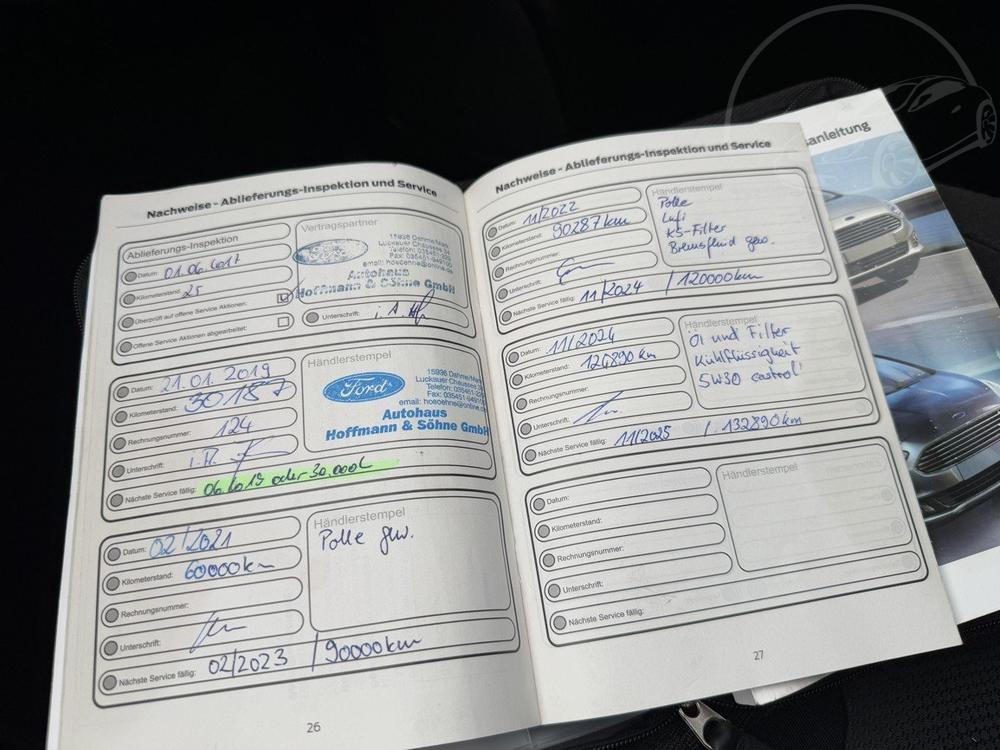 Nachweise - Ablieferungs-Inspektion und Service
Ablieferungs-Inspektion
Datum: 01.06.2017
Kilometerstand: 25
Überprüft auf offene Service Aktionen:
Offene Service Aktionen abgearbeitet:
Vertragspartner
15936 Dahme/Mark
Luckauer Chaussee
Telefon: 035451
Fax: 035451-949
email: hosoehne@online.de
Autohaus
Hoffmann & Söhne GmbH
Unterschrift:
Datum: 21.01.2019
Kilometerstand: 30187
Rechnungsnummer: 124
Unterschrift:
Nächste Service fällig: oder 30.000
Händlerstempel
Ford
15936 Dahme/Mark
Luckauer Chaussee
Telefon: 035451
Fax: 035451-949
email: hosoehne@online
Autohaus
Hoffmann & Söhne GmbH
Datum: 02/2021
Kilometerstand: 60000km
Rechnungsnummer:
Unterschrift:
Nächste Service fällig: 02/2023 / 90000km
Händlerstempel
Polle gew.
26
Nachweise - Ablieferungs-Inspektion und Service
Datum: 11/2022
Kilometerstand: 90287km
Rechnungsnummer:
Unterschrift:
Nächste Service fällig: 11/2024 / 120000km
Händlerstempel
Polle
Lufi
KS-Filter
Bremsfluid gew.
Datum: 11/2024
Kilometerstand: 124890 km
Rechnungsnummer:
Unterschrift:
Nächste Service fällig: 11/2025 / 132890km
Händlerstempel
Öl und Filter
Kühlflüssigkeit
5W30 castrol
Datum:
Kilometerstand:
Rechnungsnummer:
Unterschrift:
Nächste Service fällig:
Händlerstempel
27
sanleitung